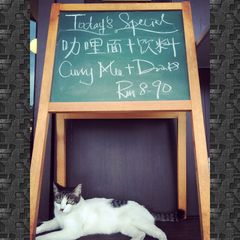 Today's Special
叻哩面+饮料
Curry Mee + Drinks
Rm 8.90